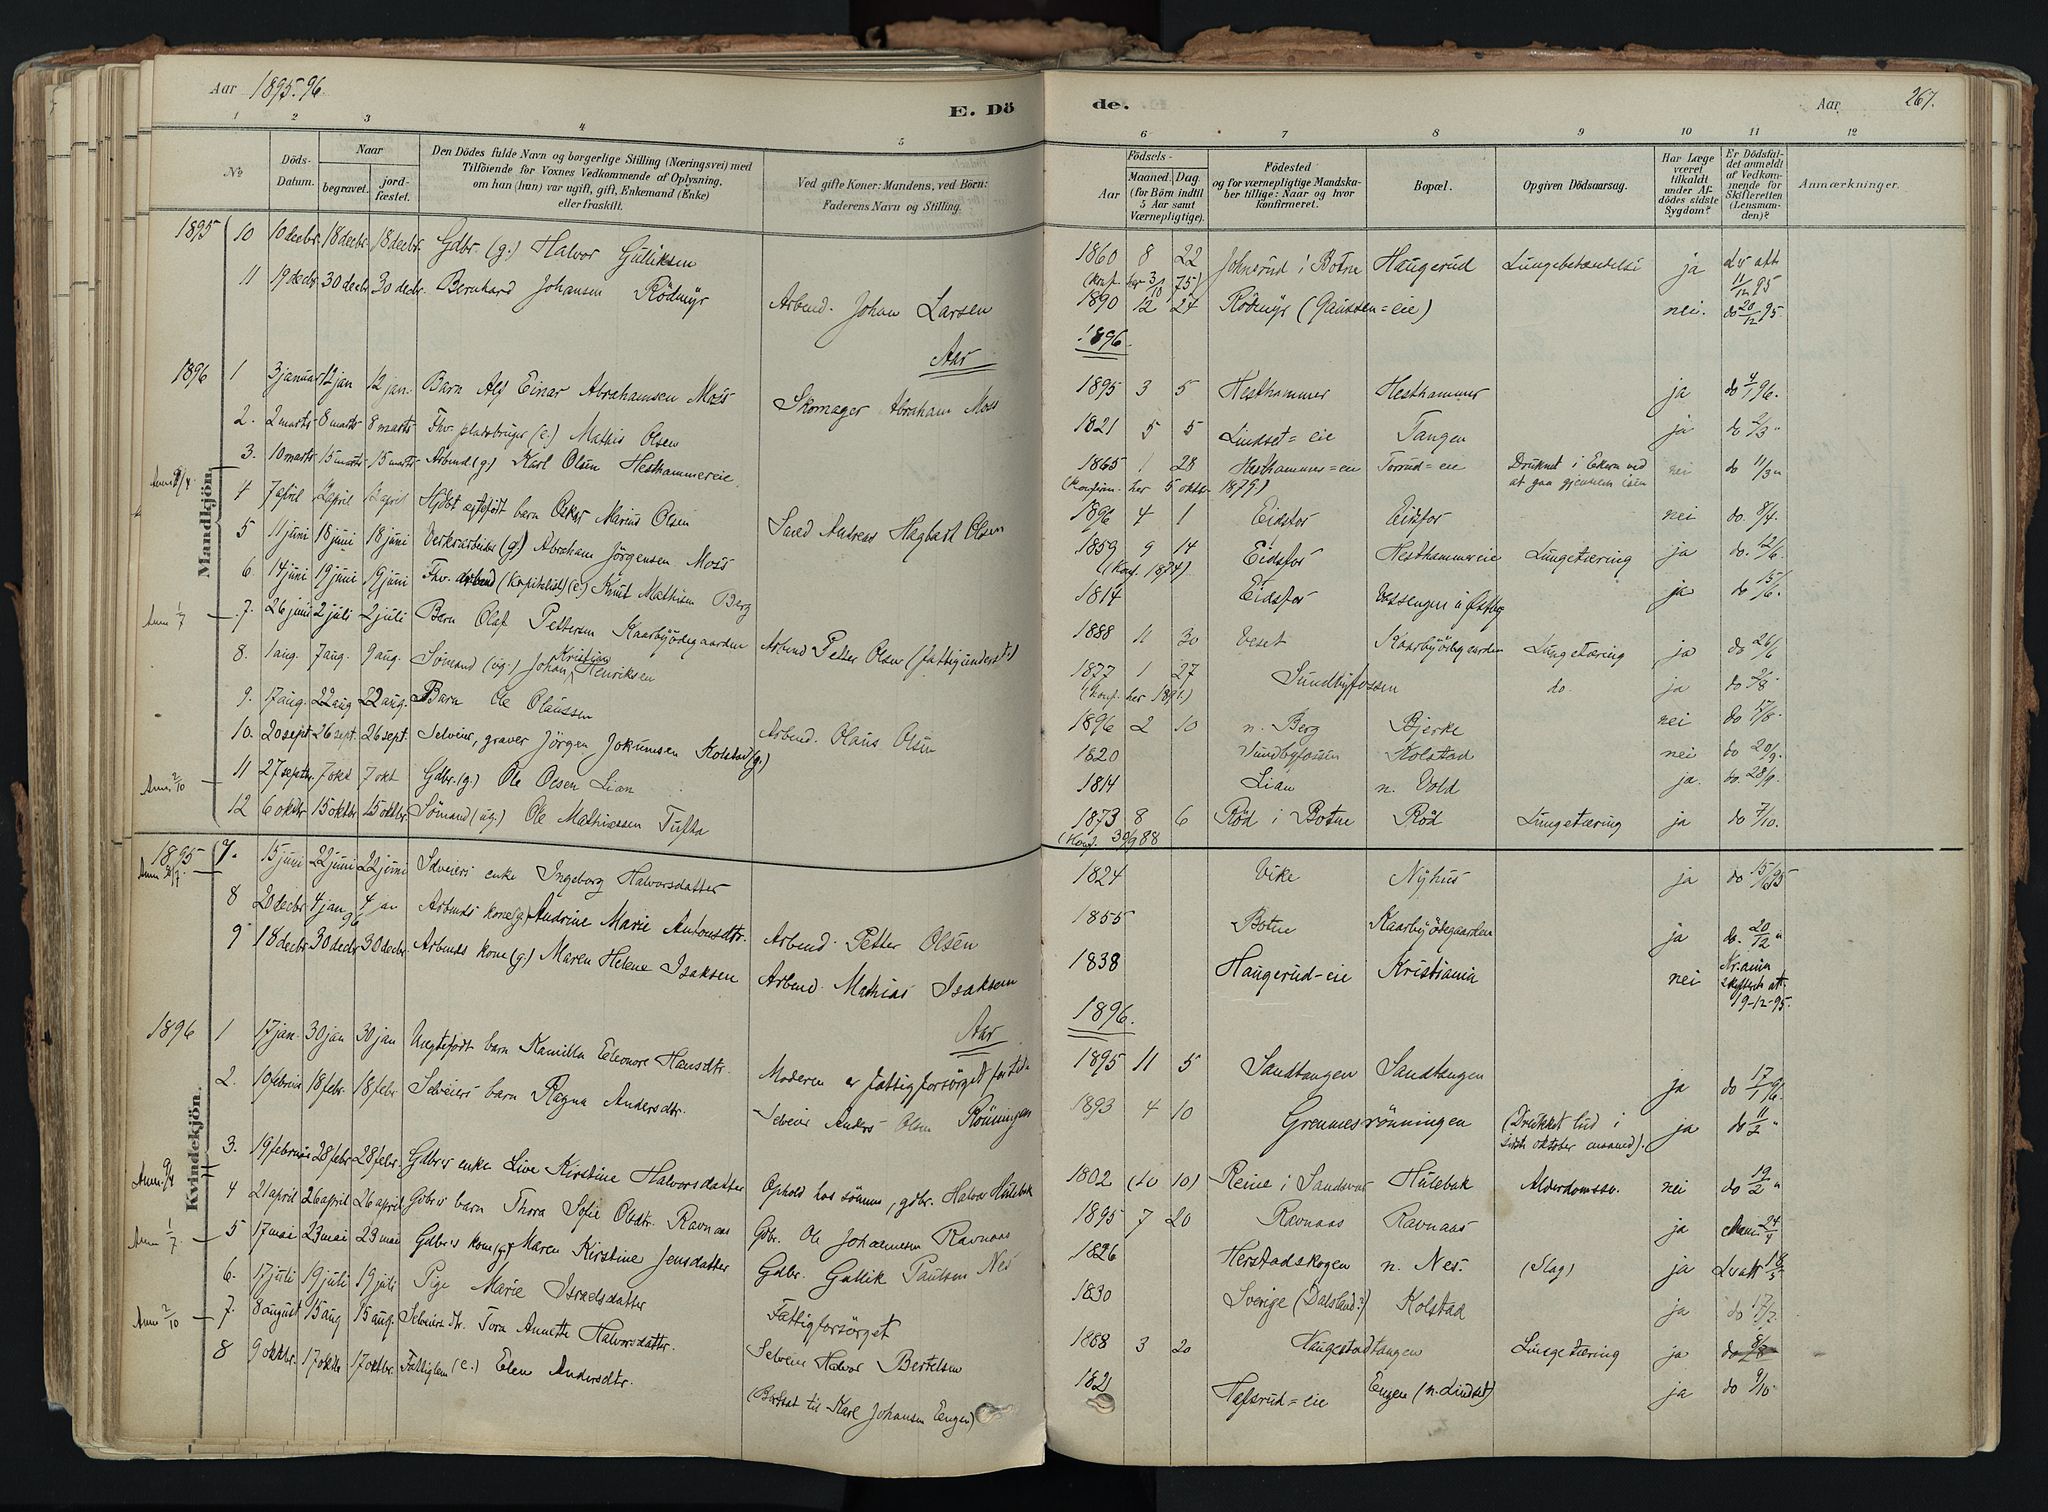 Aar 1895-96.
E. Dö
de.
Aar
267.
1 2 3 4 5 6 7 8 9 10 11 12
No
Döds-Datum.
Naar
begravet.
jord-fæstet.
Den Dödes fulde Navn og borgerlige Stilling (Næringsvei) med
Tilföiende for Voxnes Vedkommende af Oplysning,
om han (hun) var ugift, gift, Enkemand (Enke)
eller fraskilt.
Ved gifte Koner: Mandens, ved Börn:
Faderens Navn og Stilling.
Födsels-
Aar
Maaned. Dag.
(for Börn indtil
5 Aar samt
Værnepligtige).
Födested
og for værnepligtige Mandska-
ber tillige: Naar og hvor
konfirmeret.
Bopæl.
Opgiven Dödsaarsag.
Har Læge
været
tilkaldt
under Af-
dödes sidste
Sygdom?
Er Dödsfal-
det anmeldt
af Vedkom-
mende for
Skifteretten
(Lensman-
den)?
Anmærkninger.
Mandkjön.
1895 10 10 decbr. 18 decbr. 18 decbr. Gdbr. (g.) Halvor Gulliksen 1860 8 22 Johnsrud i Botne Haugerud Lungebetændelse ja Lv att 11/12 95
(Konf. her 3/10 75)
11 19 decbr. 30 decbr. 30 decbr. Bernhard Johansen Rödmyr Arbeid. Johan Larsen 1890 12 24 Rödmyr (Gaussen=eie) nei. do 20/12 95.
Aar 1896.
1896 1 3 januar 12 jan 12 jan. Barn Alf Einar Abrahamsen Moss Skomager Abraham Moss 1895 3 5 Hesthammer Hesthammer ja do 4/1 96.
2. 2 marts 8 marts 8 marts Fhv. pladsbruger (e.) Mathis Olsen 1821 5 5 Lindset=eie Tangen ja do 2/3 "
3. 10 marts 15 marts 15 marts Arbeid (g.) Karl Olsen Hesthammereie 1865 1 28 Hesthammer=eie Torrud=eie Druknet i Ekern ved at gaa gjennem isen nei do 11/3 "
(Konfirm. her 5 oktbr 1879.)
4 7 april 12 april 12 april Hjdöbt ægtefödt barn Oskar Marius Olsen Smed Andreas Hagbart Olsen 1896 4 1 Eidsfos Eidsfos nei do. 8/4.
5 11 juni 18 juni 18 juni Verksarbeider (g.) Abraham Jörgensen Moss 1859 9 14 Eidsfos Hesthammereie Lungetæring ja do. 12/6.
(Konf. 1874)
6. 14 juni 19 juni 19 juni Fhv. arbeid (kapitalist) (e.) Knut Mathisen Berg 1814 Eidsfos ja do 15/6.
Anm 1/7 7. 26 juni 2 juli 2 juli Barn Olaf Pettersen Kaarbyödegaarden Arbeid Petter Olsen (fattigunderst.) 1888 11 30 Veset Kaarbyödegaarden Lungetæring ja do 26/6
8. 1 aug. 7 aug. 9 aug. Sömand (ug.) Johan Kristian Henriksen 1877 1 27 Sundbyfossen do. ja do 2/8.
(Konf. her 1891.)
9. 17 aug. 22 aug 22 aug. Barn Ole Olaussen Arbeid. Olaus Olsen 1896 2 10 n. Berg Bjerke nei do 17/8.
10. 20 sept 26 sept. 26 sept. Selveier, graver Jörgen Jokumsen Kolstad (g.) 1820 Sundbyfossen Kolstad nei do 20/9.
Anm. 2/10 11 27 septbr. 7 okt 7 okt Gdbr. (g.) Ole Olsen Lian 1814 Lian n. Vold ja. do. 28/9.
12 6 oktbr 15 oktbr 15 oktbr Sömand (ug.) Ole Mathiassen Tufta 1873 8 6 Röd i Botne Röd Lungetæring ja do 7/10.
(Konf. 30/9 88
Kvindekjön.
1895 7. 15 juni 22 juni 22 juni Selveiers enke Ingeborg Halvorsdatter 1824 Vike Nyhus ja do 15/6 95
8 20 decbr 4 jan 96 4 jan Arbeids kone (g.) Andrine Marie Antonsdtr. Arbeid. Petter Olsen 1855 Botne Kaarbyödegaarden ja do. 20/12 "
9 18 decbr 30 decbr 30 decbr. Arbeids kone (g.) Maren Helene Isaksen Arbeid. Mathias Isaksen 1838 Haugerud-eie Kristiania nei Kr.ania skifterets att. 19-12-95.
Aar 1896.
1896 1 17 jan. 30 jan 30 jan Uægtefödt barn Kamilla Eleonore Hansdtr. Moderen er fattigforsörget for tiden 1895 11 5 Sandtangen Sandtangen ja do 17/1 96.
2. 10 februar 18 febr. 18 febr Selveiers barn Ragna Andersdtr. Selveier Anders Olsen Rönningen 1893 4 10 Grennesrönningen (Drukket lud i sidste oktober maaned). ja do 11/2 "
3. 19 februar 28 febr 28 febr. Gdbr.s enke Live Kirstine Halvorsdatter Ophold hos sönnen, gdbr. Halvor Hulebak 1802 (10 10) Reine i Sandsvær Hulebak Alderdomssv. nei do 19/2 "
Anm. 9/4 4 21 april 26 april 26 april Gdbr.s barn Thora Sofie Olsdtr. Ravnaas Gdbr. Ole Johannesen Ravnaas 1895 7 20 Ravnaas Ravnaas ja 24/4
Anm 1/7 5 17 mai 23 mai 23 mai Gdbr.s kone (g.) Maren Kirstine Jensdatter Gdbr. Gullik Paulsen Nes 1826 Herstadskogen n. Nes. (Slag) ja Lv att 18/5
6. 17 juli 19 juli 19 juli Pige Marie Israelsdatter Fattigforsörget 1830 Sverige (Dalsland?) Kolstad ja do 17/7.
Anm 2/10 7. 8 august 15 aug 15 aug. Selveiers dtr. Tora Annette Halvorsdattr. Selveier Halvor Bertelsen 1888 3 20 Haugestadtangen Lungetæring ja do 8/8
8 9 oktbr. 17 oktbr 17 oktbr. Fattiglem (e.) Elen Andersdtr. (Bortsat til Karl Johansen Eengen) 1821 Hafsrud=eie Engen (n. Lindset) ja do 9/10.